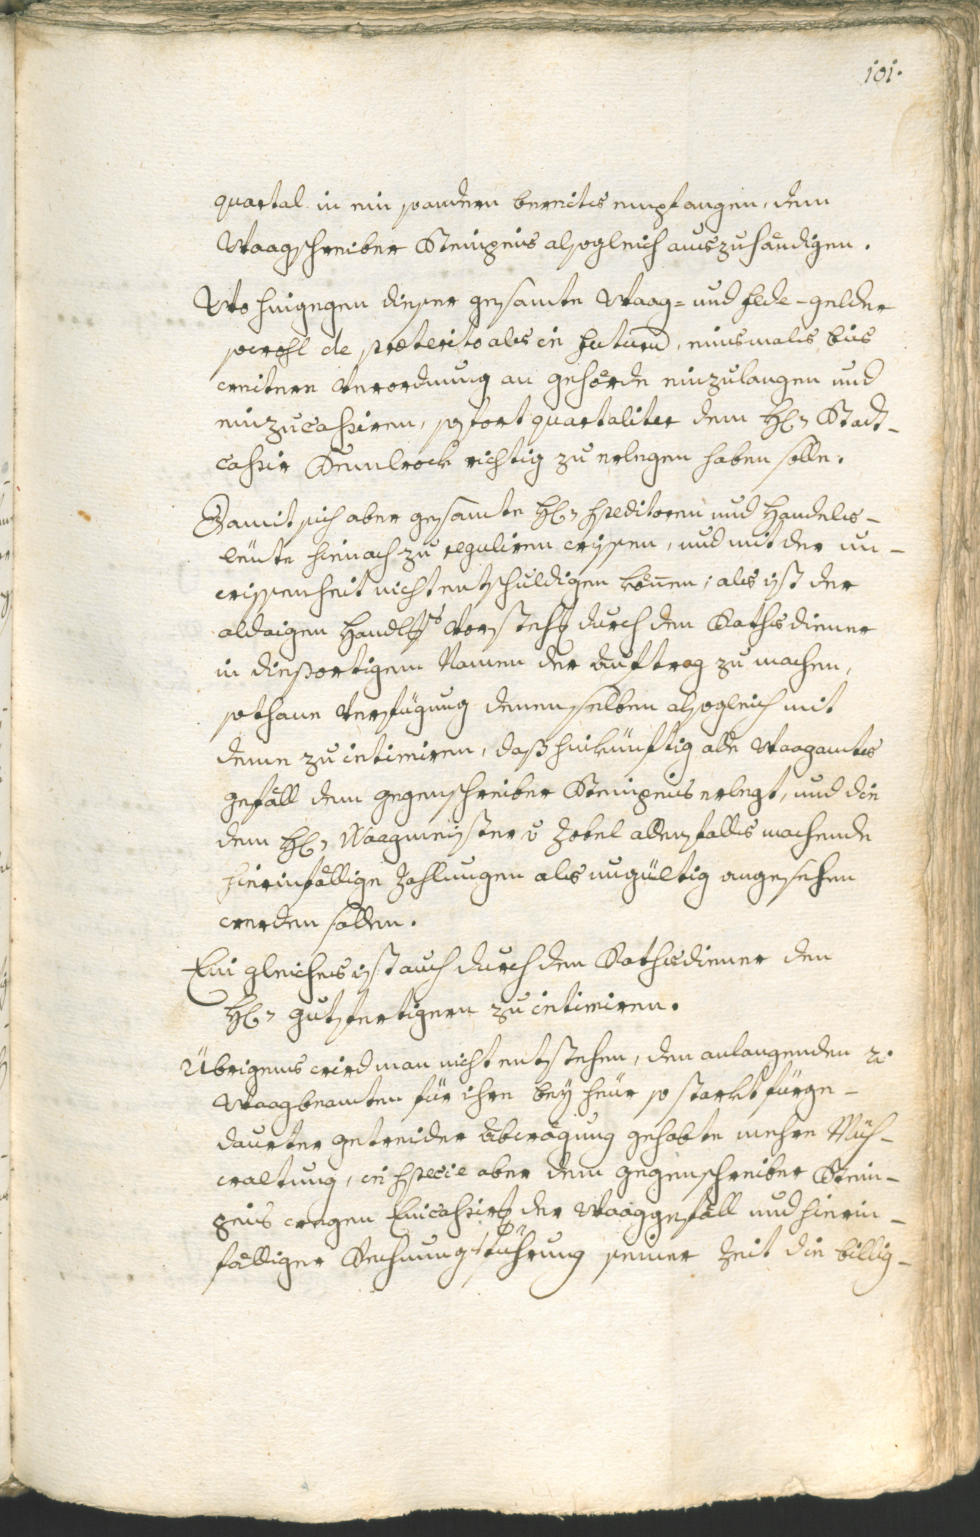 101.
quartal in ein so andern bereits empfangen, dem
Waagschreiber Steinpeis alsogleich auszuhändigen.
Wo hingegen dieser gesamte Waag- und fede-gelder
sowohl de præterito als in futurũ, einsmals bis
weitere Verordnung an gehörde einzulangen und
einzucassiren, sofort quartaliter dem H: Stadt-
cassir Demlrock richtig zu erlegen haben solle.
Damit sich aber gesamte H: Speditoren und Handels-
leüte hienach zu reguliren wissen, und mit der un-
wissenheit nicht entschuldigen können; als ist der
aldaigen Handls Vorstehg durch den Rathsdiener
in diesortigem Namen der auftrag zu machen,
sothane Verfügung denenselben alsogleich mit
deme zu intimiren, daß hinkünftig alle Waagamts
gefäll dem gegenschreiber Steinpeis erlegt, und die
dem H: Waagmeister v Zobel allenfalls machende
hierinfällige Zahlungen als ungültig angesehen
werden sollen.
Ein gleiches ist auch durch den Rathsdiener den
H: gutfertigern zu intimiren.
Übrigens wird man nicht entstehen, den anlangenden 2.
Waagbeamten für ihre bey heür so starkt fürge-
daurter getreider abwägung gehabte mehre Müh-
waltung, in specie aber dem gegenschreiber Stein-
peis wegen Eincassirg der Waaggefäll und hierin-
fälliger Rechnungsführung seiner Zeit die billig-